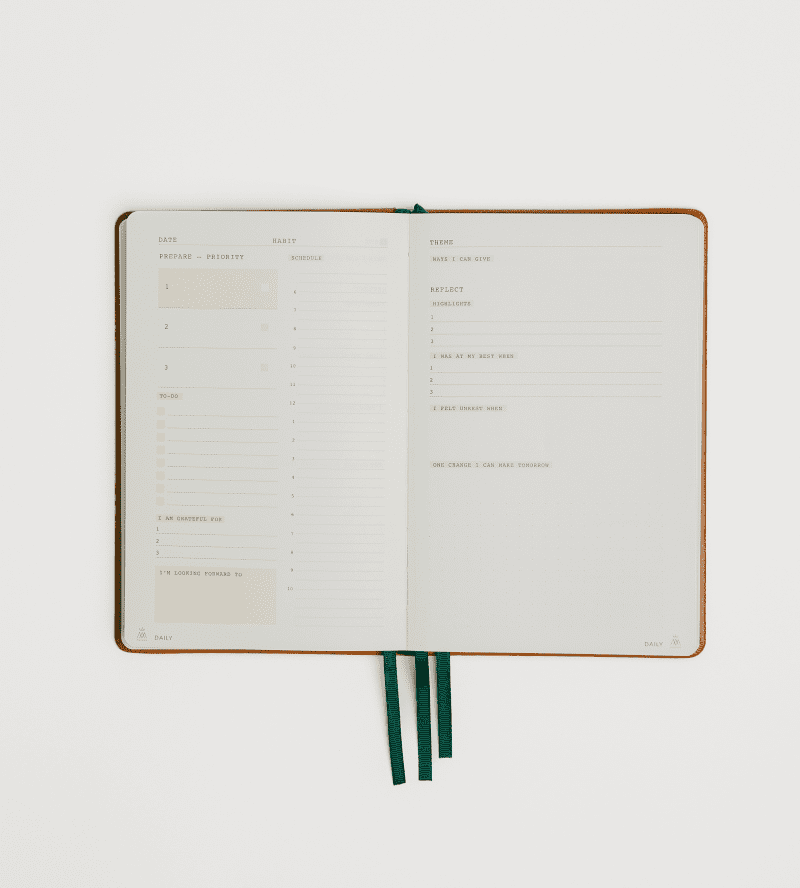 DATE
HABIT
PREPARE — PRIORITY
SCHEDULE
1
2
3
TO-DO
I AM GRATEFUL FOR
1
2
3
I'M LOOKING FORWARD TO
6
7
8
9
10
11
12
1
2
3
4
5
6
7
8
9
10
DAILY
THEME
WAYS I CAN GIVE
REFLECT
HIGHLIGHTS
1
2
3
I WAS AT MY BEST WHEN
1
2
3
I FELT UNREST WHEN
ONE CHANGE I CAN MAKE TOMORROW
DAILY